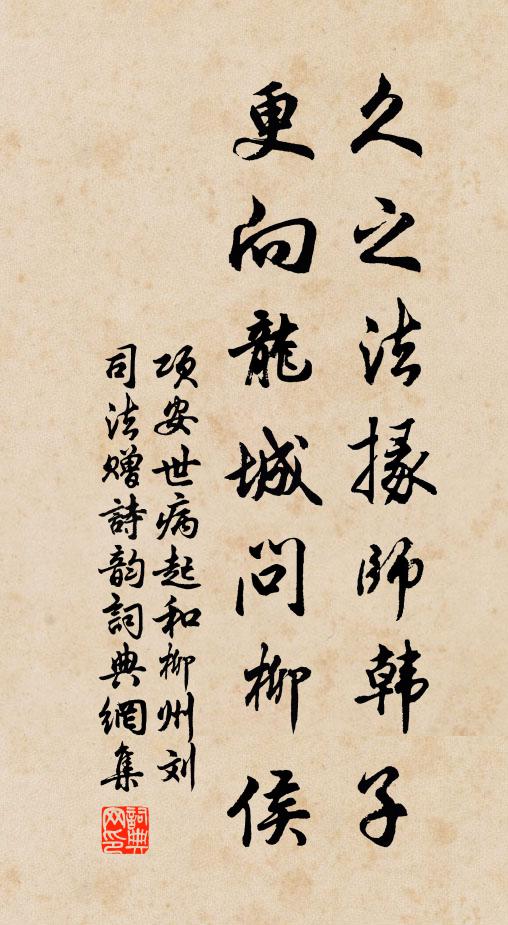 久之法掾師韩子
更向龍城問柳侯
项安世病起和柳州刘
司法赠詩韵詞典網集
詞典网印